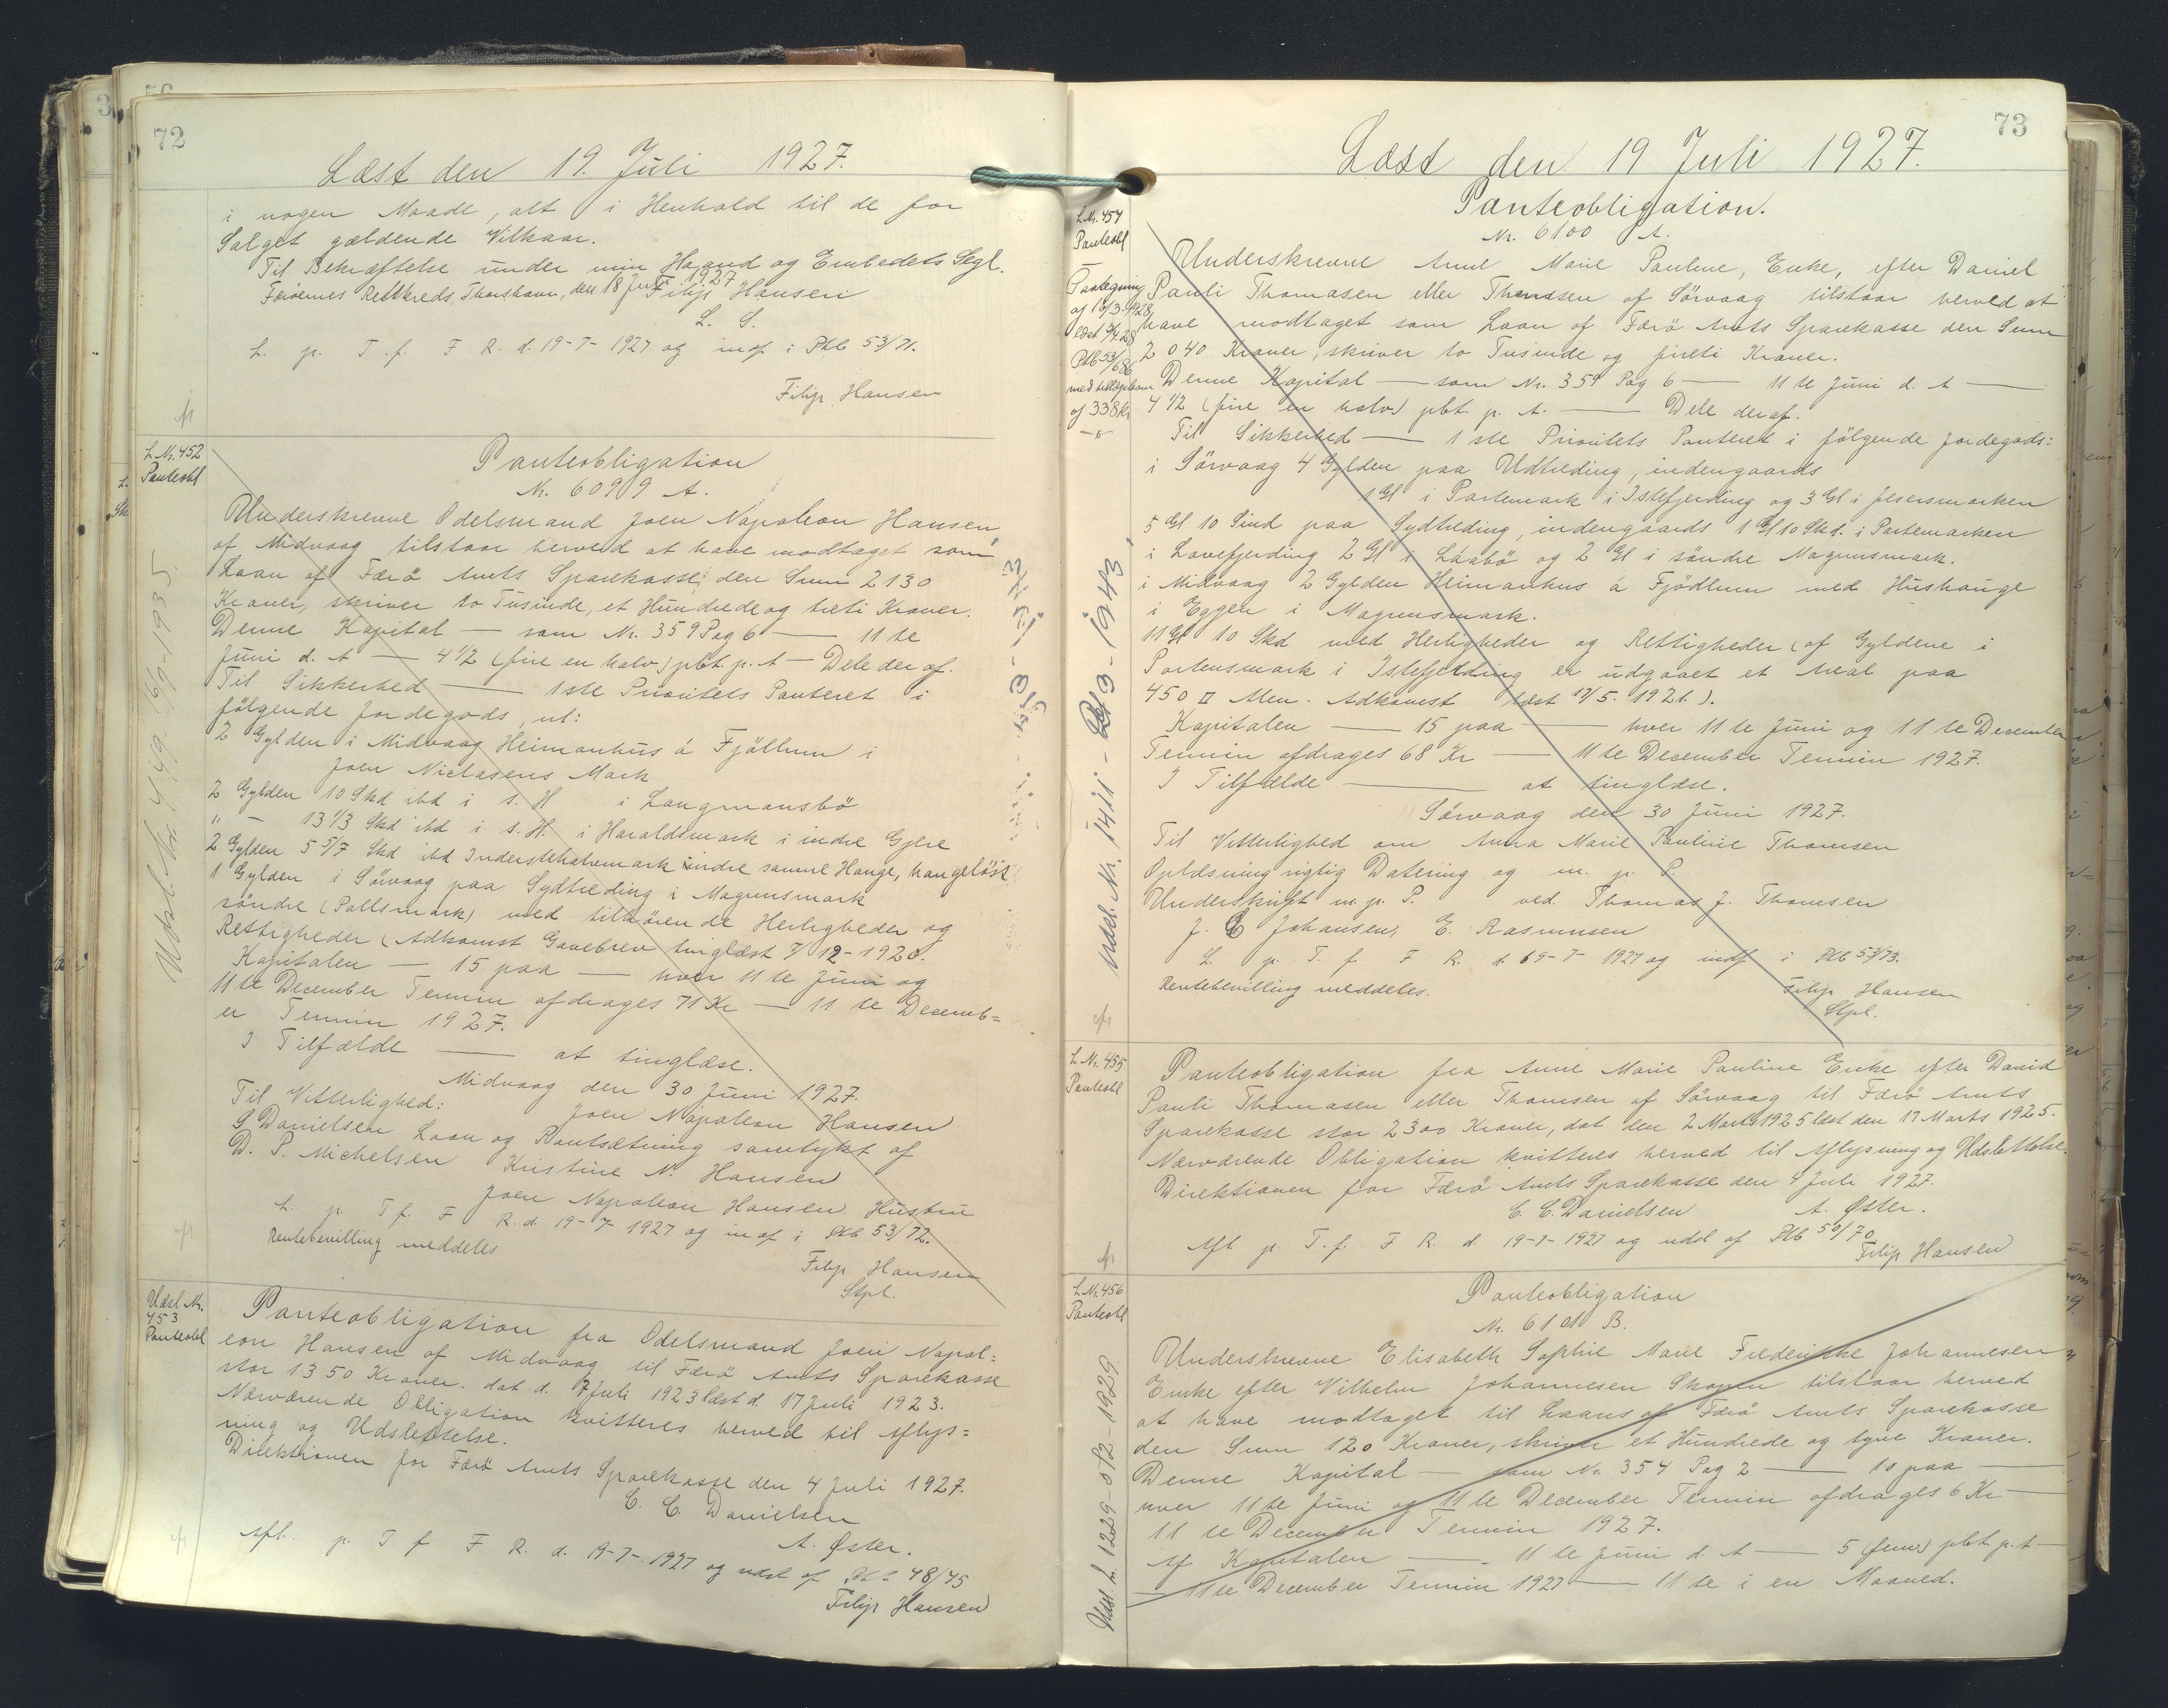 72
Læst den 19. Juli 1927.
i nogen Maade, alt i Henhold til de for
Salget gældende Vilkaar.
Til Bekræftelse under min Haand og Embedets Segl.
Færøernes Retskreds, Thorshavn, den 18 Juli 1927
Filip Hansen
L. S.
L. p. T. f. F R. d. 19-7-1927 og indf i Pkb 53/71.
Filip Hansen
L. Nr. 452
Panteobl
Panteobligation
Nr. 6099 A.
Underskrevne Odelsmand Joen Napoleon Hansen
af Midvaag tilstaar herved at have modtaget som
Laan af Færö Amts Sparekasse den Sum 2130
Kroner, skriver to Tusinde, et Hundrede og treti Kroner.
Denne Kapital — som Nr. 359 Pag 6 — 11 te
Juni d. A — 4 1/2 (fire en halv) pCt. p. A — Dele deraf.
Til Sikkerhed — 1ste Prioritets Panteret i
fölgende Jordegods, nl:
2 Gylden i Midvaag Heimanhus á Fjöllum i
Joen Niclasens Mark
2 Gylden 10 Skd ibd i s. H i Langmansbö
" — 13 1/3 Skd ibd i s. H. i Haraldsmark i indre Gjere
2 Gylden 5 5/7 Skd ibd Inderstehalvemark indre samme Hauge, haugelöst
1 Gylden i Sörvaag paa Sydtreding i Magnusmark
söndre (Pallsmark) med tilhörende Herligheder og
Rettigheder (Adkomst Gavebrev tinglæst 7/12-1920.
Kapitalen — 15 paa — hver 11 te Juni og
11 te December Termin afdrages 71 Kr — 11 te Decemb=
er Termin 1927.
I Tilfælde — at tinglæse.
Midvaag den 30 Juni 1927.
Til Vitterlighed: Joen Napoleon Hansen
S Danielsen Laan og Pantsætning samtykt af
D. P. Michelsen Kristine N. Hansen
Joen Napoleon Hansen Hustru
L. p. T f. F R. d. 19-7-1927 og indf i Pkb 53/72.
Rentebevilling meddeles
Filip Hansen
Stpl.
Udsl. Nr. 449. 16/9-1935.
Udsl Nr.
453
Panteobl
Panteobligation fra Odelsmand Joen Napol=
eon Hansen af Midvaag til Færö Amts Sparekasse
stor 1350 Kroner. dat d. 7 Juli 1923 læst d. 17 Juli 1923.
Nærværende Obligation kvitteres herved til Aflys=
ning og Udslettelse.
Direktionen for Færö Amts Sparekasse den 4 Juli 1927.
C. C. Danielsen
A. Øster.
Afl. p. T f F R. d. 19-7-1927 og udsl af Pkb 48/45
Filip Hansen
73
Læst den 19 Juli 1927.
Panteobligation.
Nr. 6100 A.
L. Nr. 454
Panteobl
Paategning
af 16/3-1928
læst 3/4 28
Pkb 53/686
med tillægslaan
af 338 Kr
Underskrevne Anne Marie Pauline, Enke, efter Daniel
Pauli Thomasen eller Thomsen af Sörvaag tilstaar herved at
have modtaget som Laan af Færö Amts Sparekasse den Sum
2040 Kroner, skriver to Tusinde og fireti Kroner.
Denne Kapital — som Nr. 359 Pag 6 — 11 te Juni d. A —
4 1/2 (fire en halv) pCt. p. A. — Dele deraf.
Til Sikkerhed — 1 ste Prioritets Panteret i fölgende Jordegods:
i Sörvaag 4 Gylden paa Udtreding, indengaards
1 Gl i Partemark i Istefjerding og 3 Gl i Jesersmarken
5 Gl 10 Sind paa Sydtreding, indengaards 1 Gl 10 Skd. i Partemarken
i Lavefjerding 2 Gl i Laabö og 2 Gl i söndre Magnusmark.
i Midvaag 2 Gylden Heimanhus á Fjödlum med Hushauge
i Eggen i Magnusmark.
11 Gl 10 Skd med Herligheder og Rettigheder (af Gyldene i
Partensmark i Istefjerding er udgaaet et Areal paa
450 □ Alen. Adkomst læst 17/5. 1921.).
Kapitalen — 15 paa — hver 11 te Juni og 11 te December
Termin afdrages 68 Kr — 11 te December Termin 1927.
I Tilfælde — at tinglæse.
Sörvaag den 30 Juni 1927.
Til Vitterlighed om Anna Marie Pauline Thomsen
Oplæsning rigtig Datering og m. p. P.
Underskrift m. p. P. ved. Thomas J. Thomsen
J. C Johansen, E. Rasmussen
L. p. T. f F R. d. 19-7-1927 og indf i Pkb 53/73.
Rentebevilling meddeles.
Filip Hansen
Stpl.
L. Nr. 455
Panteobl
Panteobligation fra Anne Marie Pauline Enke efter David
Pauli Thomasen eller Thomsen af Sörvaag til Færö Amts
Sparekasse stor 2300 Kroner, dat den 2 Marts 1925 læst den 17 Marts 1925.
Nærværende Obligation kvitteres herved til Aflysning og Udslettelse.
Direktionen for Færö Amts Sparekasse den 4 Juli 1927.
C. C. Danielsen A. Øster.
Afl p. T. f. F R. d. 19-7-1927 og udsl af Pkb 50/70
Filip Hansen
L. Nr. 456
Panteobl
Panteobligation
Nr. 6101 B.
Underskrevne Elisabeth Sophie Marie Frederikke Johannesen
Enke efter Vilhelm Johannesen Skopun tilstaar herved
at have modtaget til Laans af Færö Amts Sparekasse
den Sum 120 Kroner, skriver et Hundrede og tyve Kroner.
Denne Kapital — som Nr. 354 Pag 2 — 10 paa —
hver 11 te Juni og 11 te December Termin afdrages 6 Kr —
11 te December Termin 1927.
Af Kapitalen — 11 te Juni d. A — 5 (fem) pCt p. A —
— 11 te December Termin 1927 — 11 te i en Maaned.